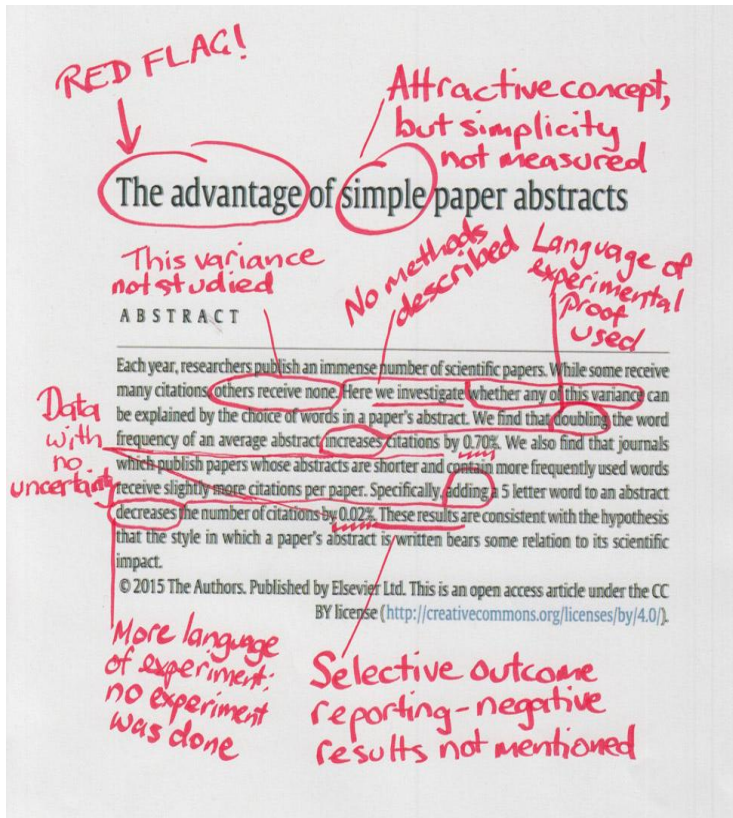 RED FLAG!
Attractive concept,
but simplicity
not measured
The advantage of simple paper abstracts
This variance
not studied
No methods
described
Language of
experimental
Proof
used
ABSTRACT
Each year, researchers publish an immense number of scientific papers. While some receive
many citations, others receive none. Here we investigate whether any of this variance can
be explained by the choice of words in a paper's abstract. We find that doubling the word
frequency of an average abstract increases citations by 0.70%. We also find that journals
which publish papers whose abstracts are shorter and contain more frequently used words
receive slightly more citations per paper. Specifically, adding a 5 letter word to an abstract
decreases the number of citations by 0.02%. These results are consistent with the hypothesis
that the style in which a paper's abstract is written bears some relation to its scientific
impact.
© 2015 The Authors. Published by Elsevier Ltd. This is an open access article under the CC
BY license (http://creativecommons.org/licenses/by/4.0/).
Data
with
no
uncertainty
More language
of experiment:
no experiment
was done
Selective outcome
reporting - negative
results not mentioned